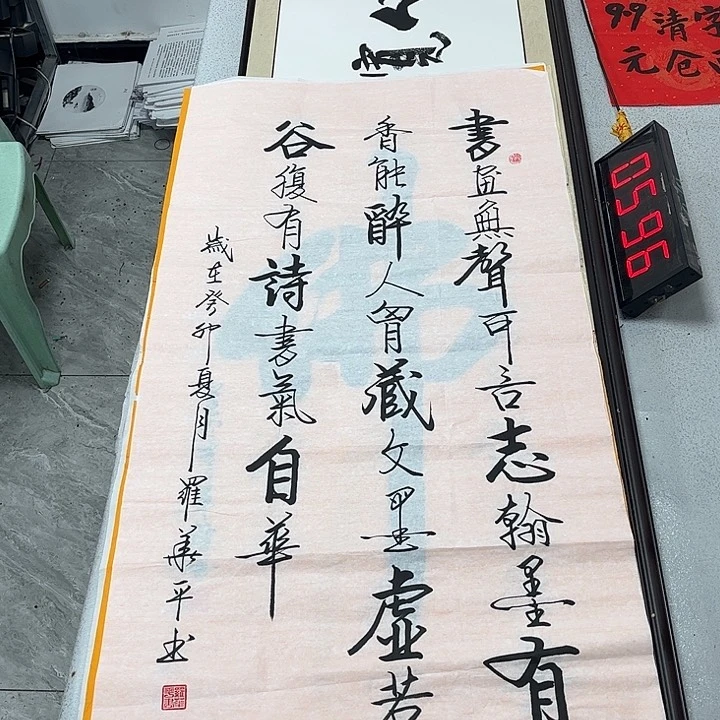 書畫無聲可言志翰墨有
香能醉人胷藏文墨虛若
谷腹有詩書氣自華
歲在癸卯夏月羅華平书
99清字
元仓
0596